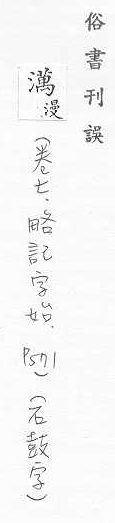 俗書刊誤
澫漫
(卷七.略記字始.P571)(石鼓字)